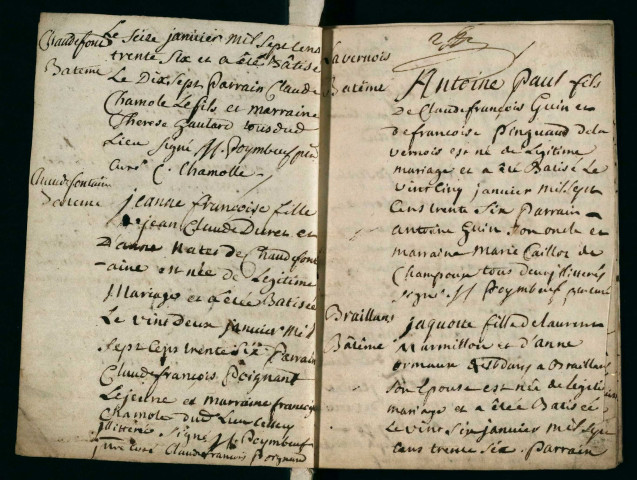 Chaudefont
Batême
Le seize janvier mil sept cens
trente six et a été Bâtisé
Le Dix sept Parrain Claude
Chamole Le fils et marraine
Therese Gaulard tous dud
Lieu Signé Poymbeuf ptre
curé C. Chamolle
Chaudefontaine
Bateme
jeanne francoise fille
de jean Claude Duret et
D'anne Mates de Chaudefont
-aine est née de Legitime
Mariage et a été Batisée
Le vint deux janvier mil
sept cens trente six Parrain
Claude françois Poignant
Lejeune et marraine françoise
Chamole dud Lieu
jllitéré Signé Poymbeuf
curé Claude francois Poignand
Lavernois
Batême
Antoine Paul fils
de Claude françois Guin et
de francoise Pinguand de la
vernois est né de Legitime
mariage et a été Batisé Le
vint cinq janvier mil sept
Cens trente six Parrain
antoine Guin son oncle et
marraine Marie Cailloz de
Champoux tous deux illiterés
signé Poymbeuf
Braillans
Bâtême
jaquotte fille de Laurent
Marmillon et d'anne
ormaux de Braillans
son Epouse est née de Legitime
mariage et a été Batisée
Le vint six janvier mil sept
Cens trente six Parrain